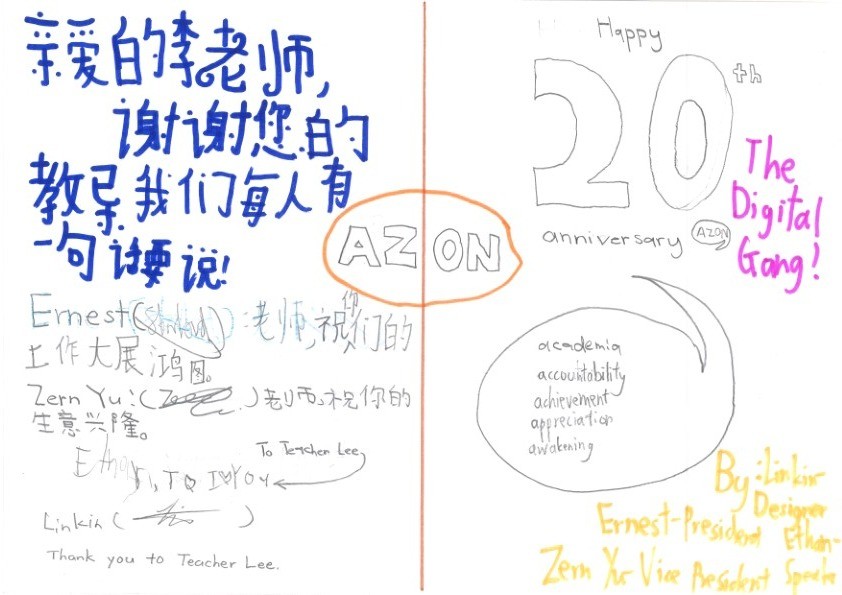 亲爱的李老师,
谢谢您的
教导.我们每人有
一句话要说!
Ernest( ):老师,祝你们的
工作大展鸿图。
Zern Yu:( )老师,祝你的
生意兴隆。
Ethan
To Teacher Lee
I ♥ YOU
Linkin ( )
Thank you to Teacher Lee.
AZON
Happy
20th
anniversary AZON
The
Digital
Gang!
academia
accountability
achievement
appreciation
awakening
By:Linkin
Designer
Ernest-President Ethan-
Zern Yu Vice President